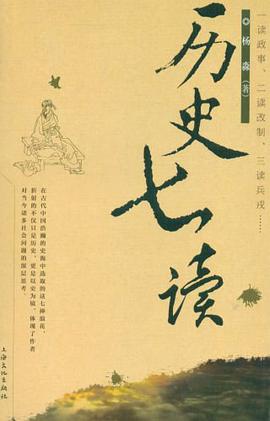 一读政事、二读改制、三读兵戎……
杨淼（著）
历史七读
在古代中国浩瀚的史海中选取的这七捧浪花，
折射的不仅只是历史，更是以史为镜，体现了作者
对当今诸多社会问题的深层思考。
上海文化出版社